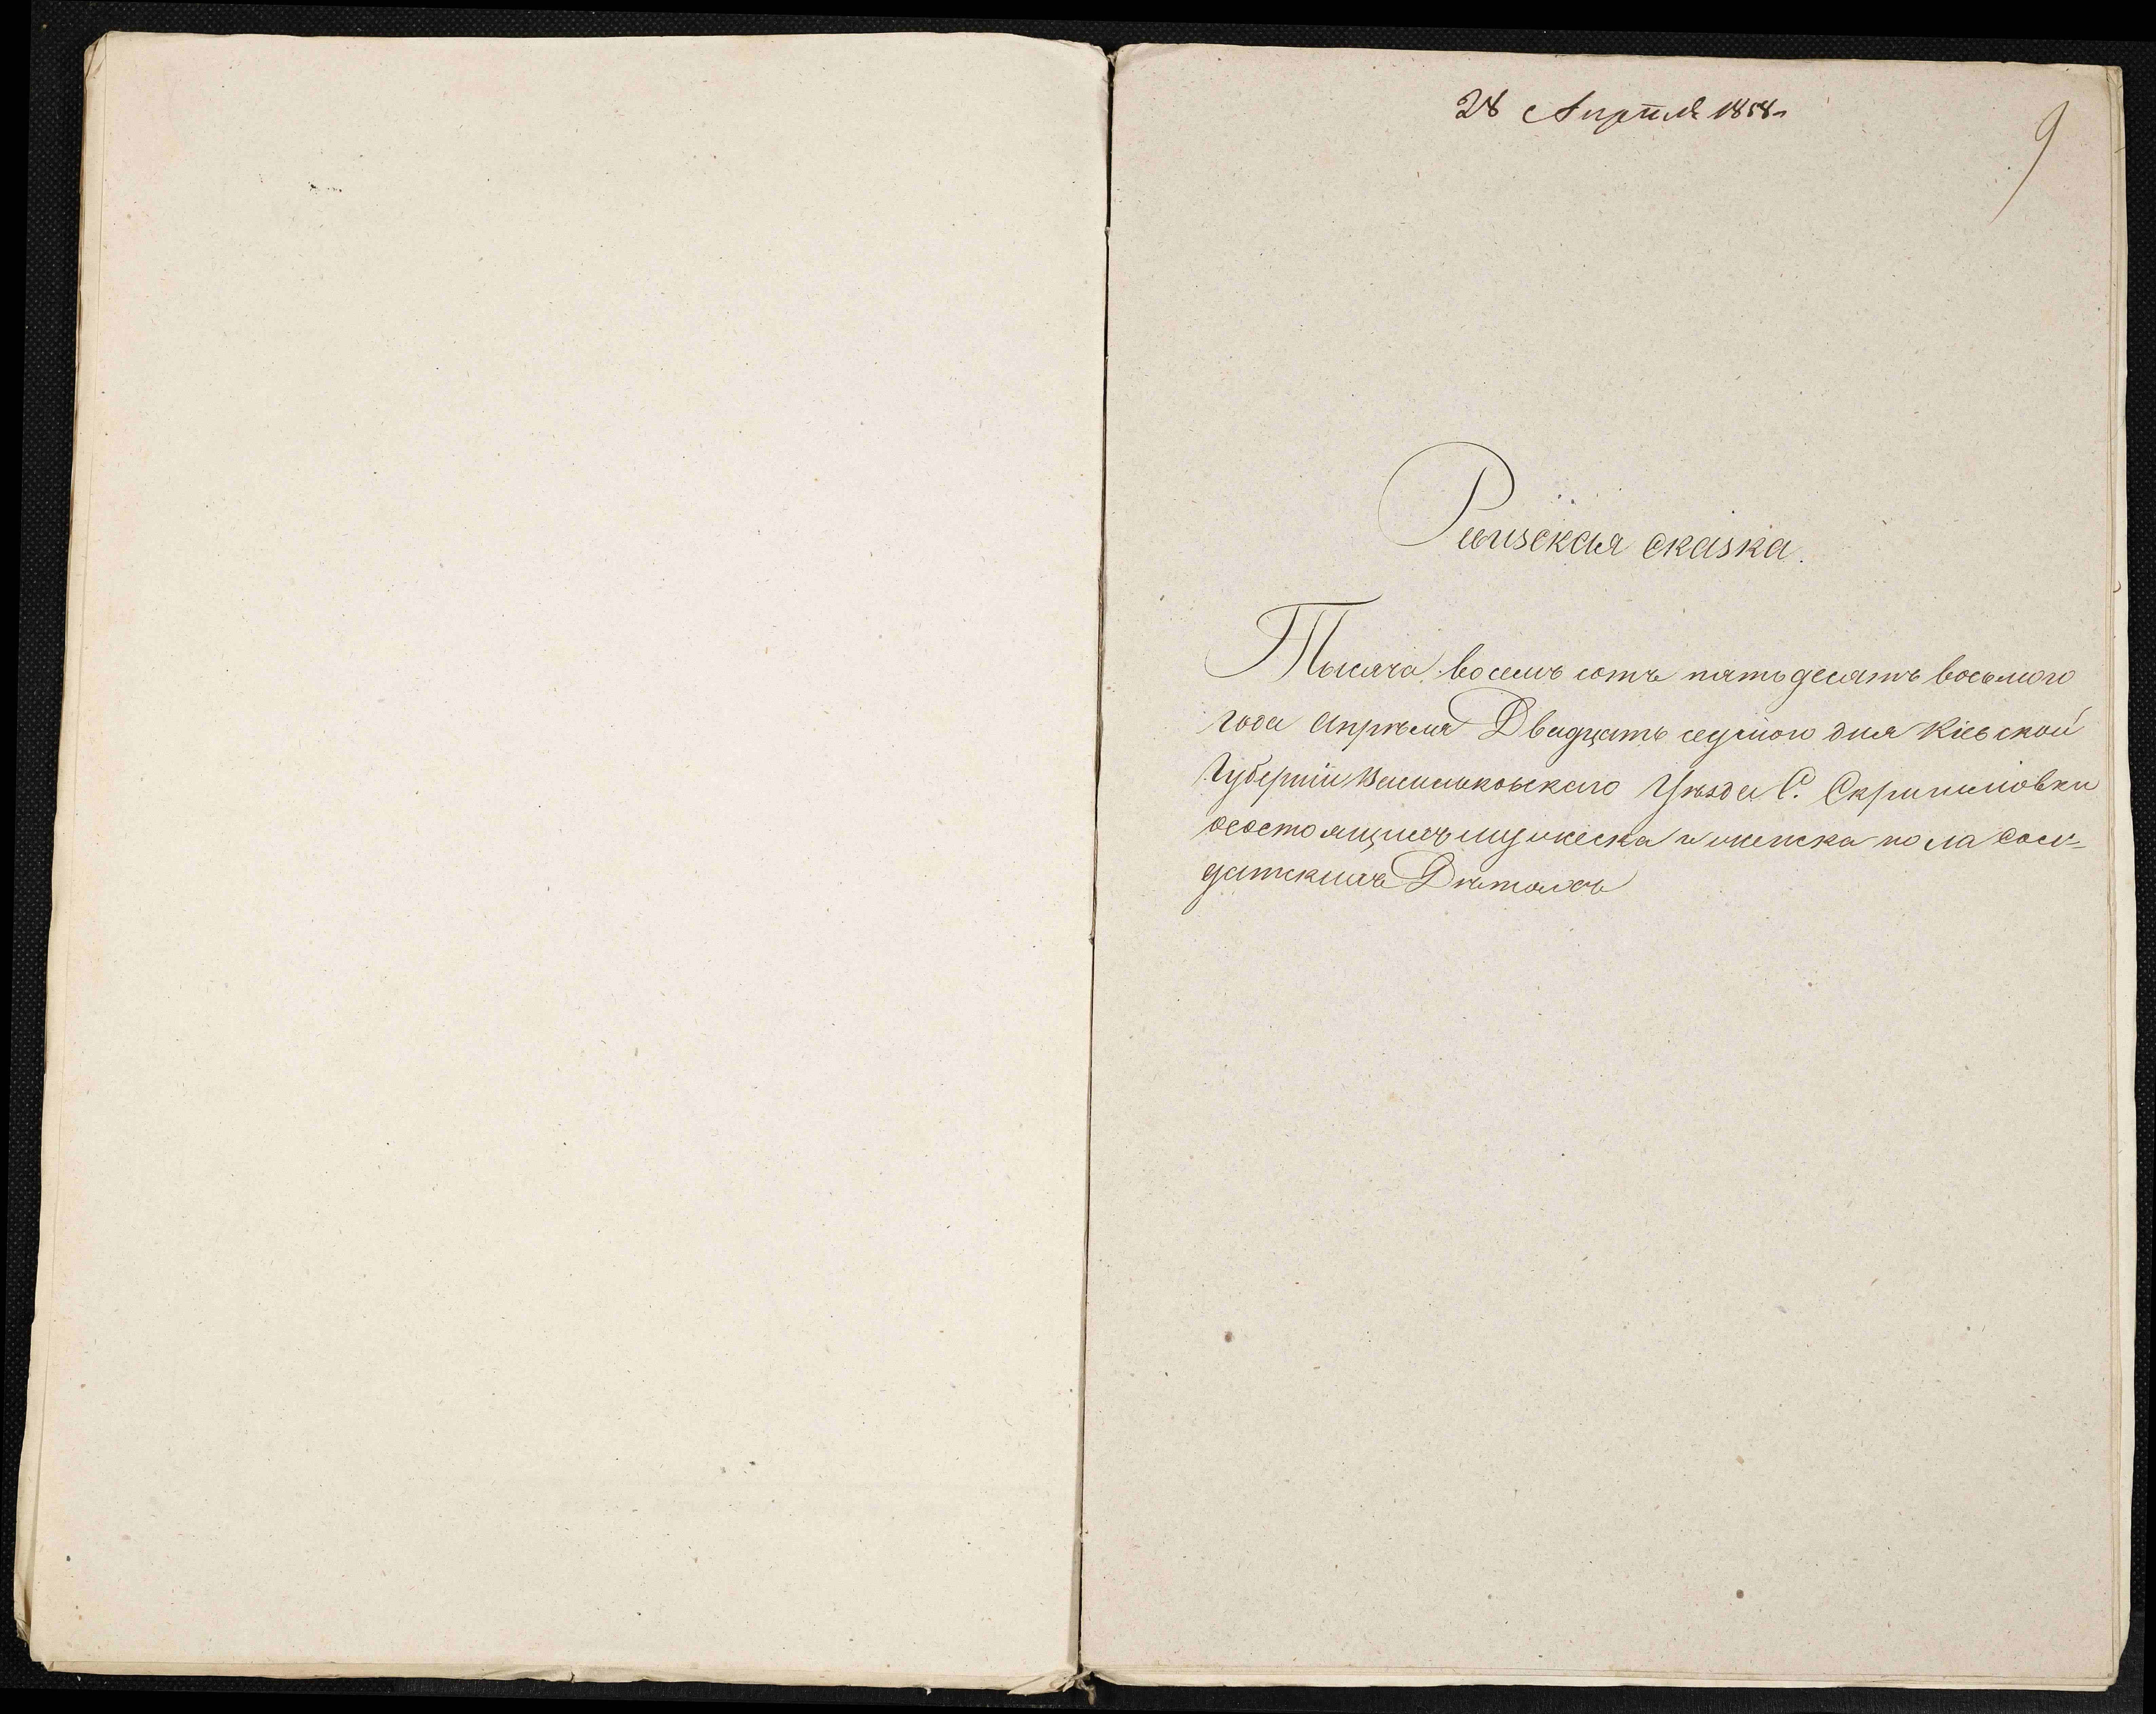 28 Апрѣля 1858 г.
9
Ревизская сказка.
Тысяча восемь сотъ пятьдесятъ восьмого
года Апрѣля Двадцать седмого дня Кіевской
Губерніи Васильковскаго Уѣзда С.
осостоящихъ мужеска и женска пола Сол-
датскихъ Дѣтяхъ